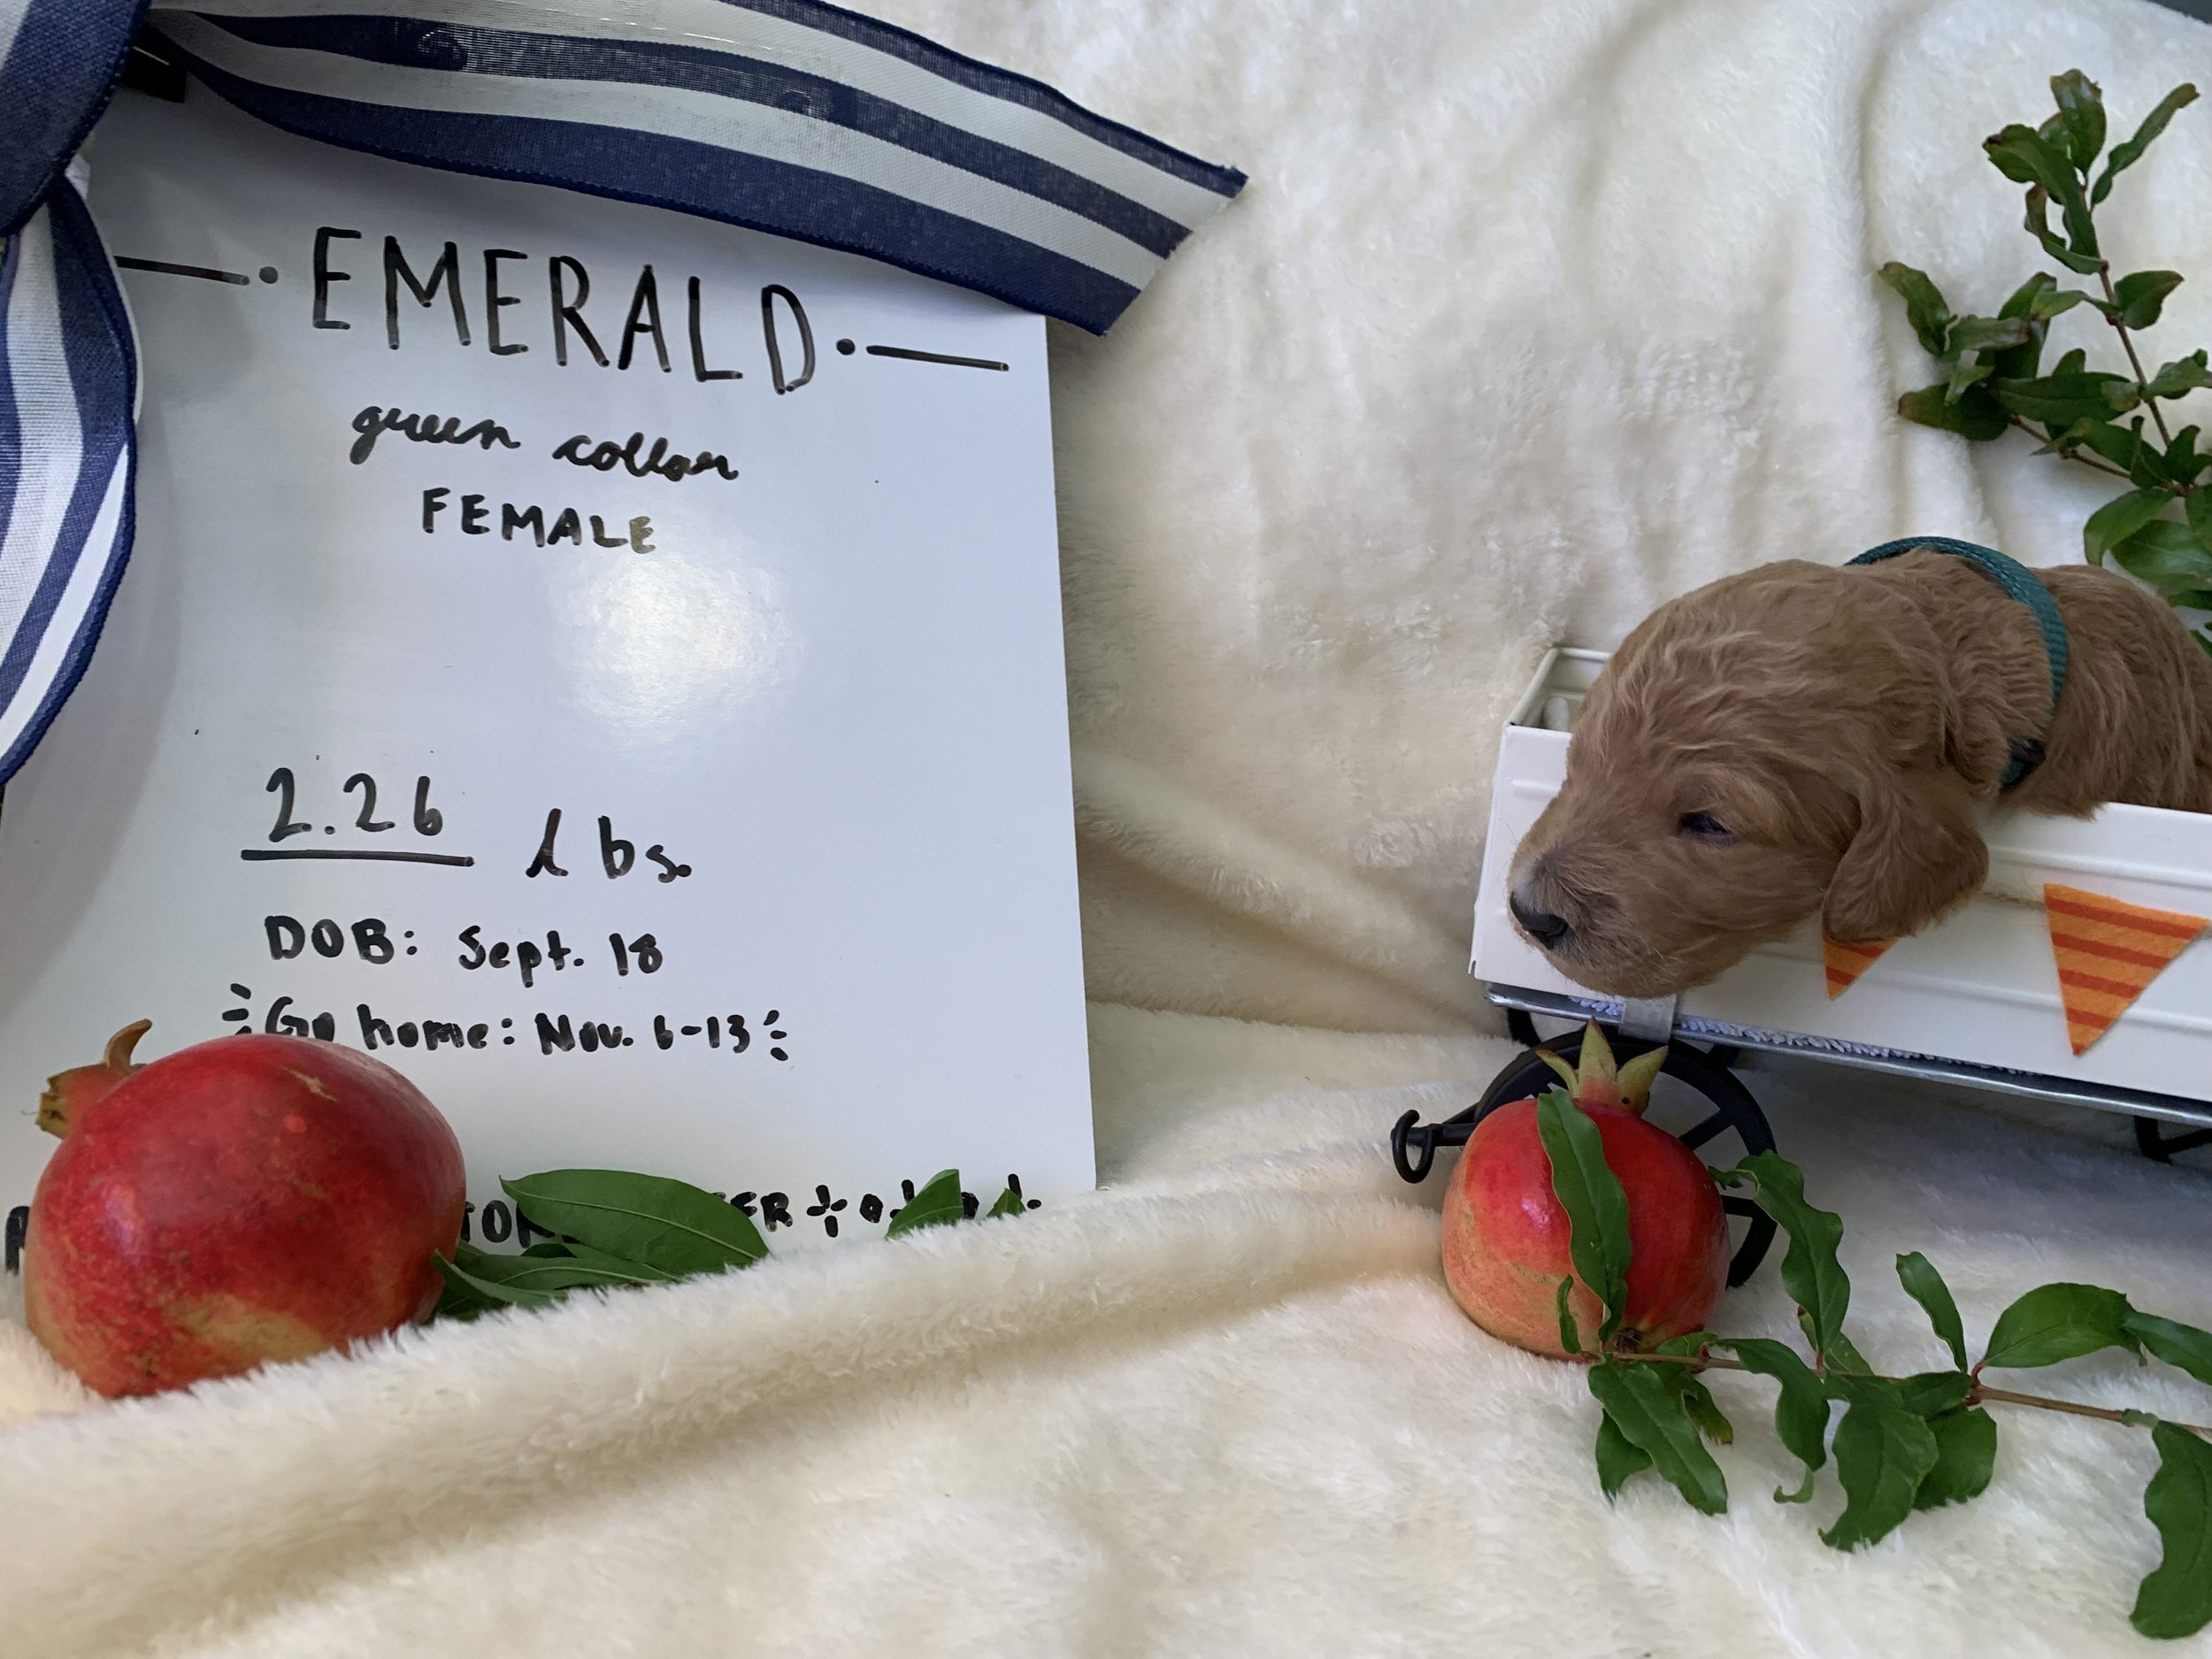 EMERALD
green collar
FEMALE
2.26 lbs.
DOB: Sept. 18
Go home: Nov. 6-13